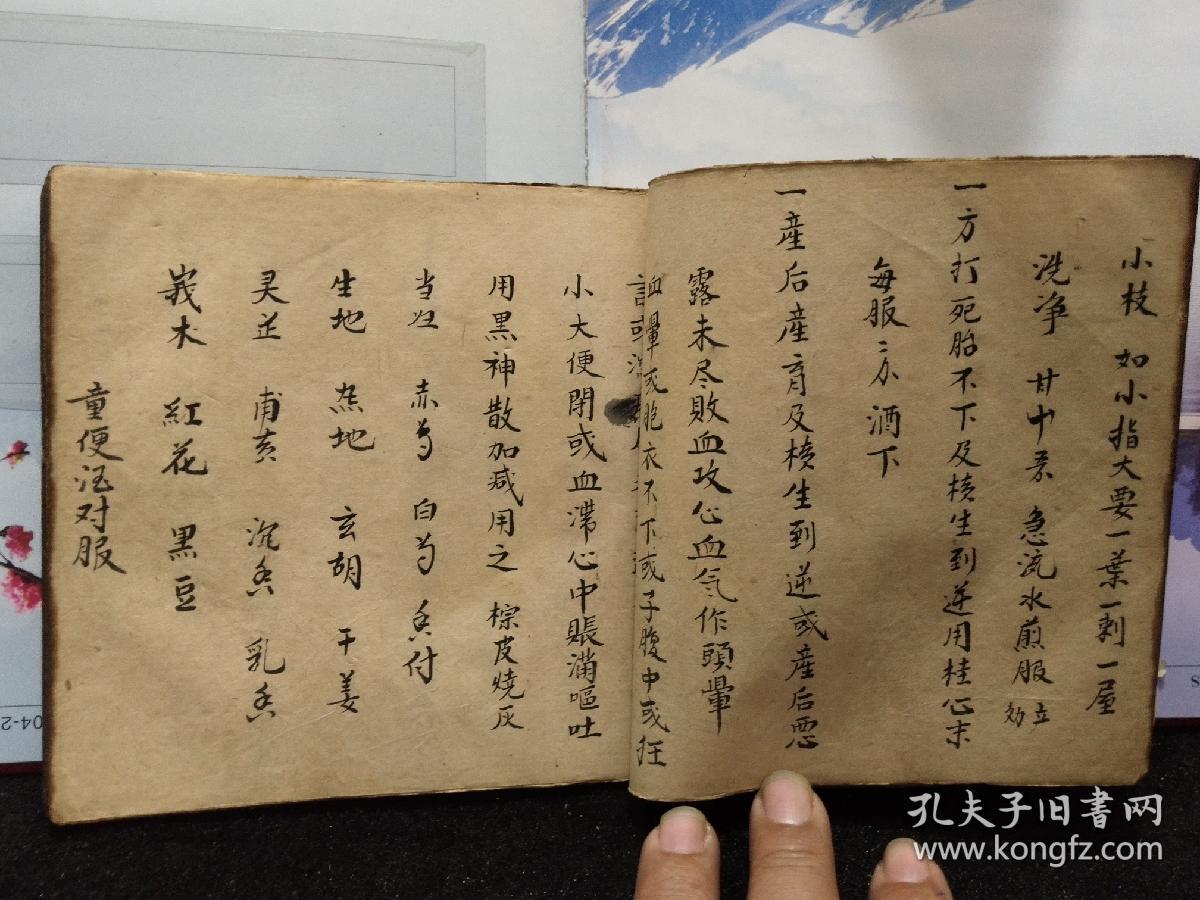 小枝 如小指大要一葉一剌一屋
洗净 甘中 急流水煎服 立効
一方打死胎不下及横生到逆用桂心末
每服 酒下
一產后產育及横生到逆或產后悪
露未尽敗血攻心血気作頭暈
血暈或胞衣不下或子腹中或狂
言或
小大便閉或血滞心中賬滿嘔吐
用黑神散加减用之 棕皮燒灰
当归 赤芍 白芍 香付
生地 熟地 玄胡 干姜
灵芷 甫黄 沉香 乳香
莪木 紅花 黑豆
童便酒对服
孔夫子旧书网
www.kongfz.com
04-2